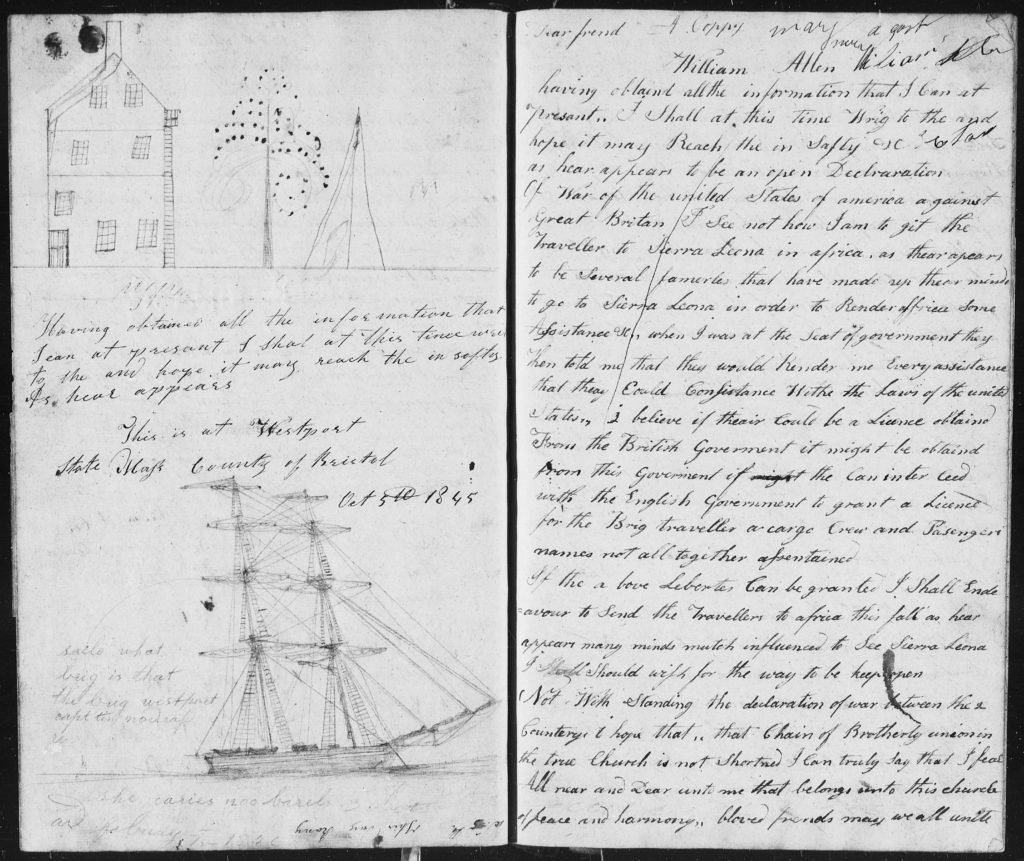 Having obtained all the information that
I can at presant I shal at this time wri
to the and hope it may reach the in softy
As hear appears
This is at Westport
State Mass County of Bristol
Oct 5th 1845
sailo what
brig is that
the brig westport
capt
she caries noo barels
Dear frend A Coppy mary a gost
William Allen William
having obtaind all the information that I Can at
present,, I Shall at this time Wrig to the and
hope it may Reach the in Safty &c
as hear appears to be an open Decltraration
Of War of the united States of america against
Great Britan I See not how I am to git the
Traveller to Sierra Leona in africa, as thear apears
to be Several famerles that have made up thear minds
to go to Sierra Leona in order to Render africa Some
Assistance &c,, when I was at the Seat of government they
then told me that they would Render me Every assistance
that theay Could Consistance Withe the Laws of the unite
States,, I believe if theair Could be a Licence obtaind
From the British Goverment it might be obtaind
from this Goverment if might the Can inter Ceed
with the English Government to grant a Licence
for the Brig traveller a cargo Crew and Pasengers
names not all together assentained
If the a bove Lebertes Can be granted I Shall Ende
=avour to Send the Travellers to africa this fall as hear
appears many minds mutch influenced to See Sierra Leona
I Should wish for the way to be keep open
Not With Standing the declaration of war between the 2
Counterys i hope that,, that Chain of Brotherly union in
the true Church is not Shortned I Can truly Say that I feal
All near and Dear unto me that belongs unto this church
of peace and harmony,, bloved frends may we all unite